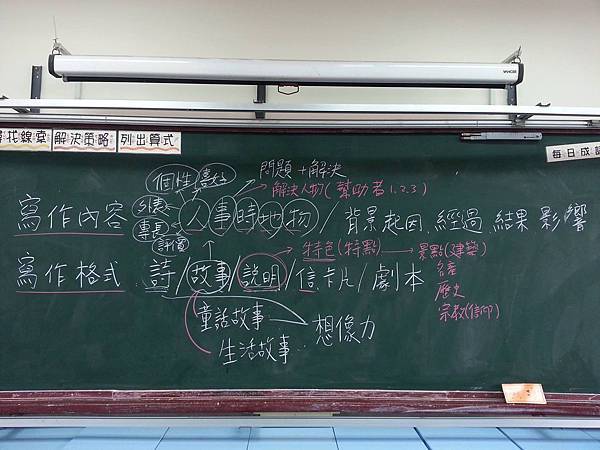 尋找線索 解決策略 列出算式
每日成語
個性 喜好 問題+解決
外表 解決人物(幫助者1.2.3)
寫作內容 人事時地物/背景起因.經過 結果 影響
專長
評價 特色(特點)→景點(建築)
寫作格式 詩/故事/說明/信.卡片/劇本
名產
歷史
宗教(信仰)
童話故事
想像力
生活故事